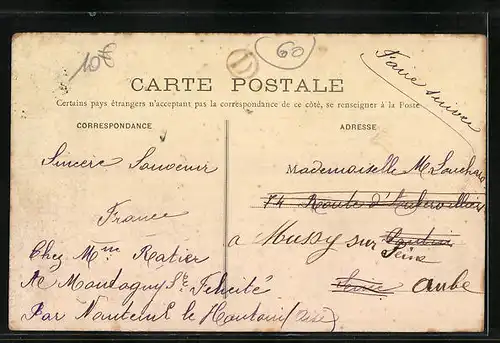 108
D
60
Faire suivre
CARTE POSTALE
Certains pays étrangers n'acceptant pas la correspondance de ce côté, se renseigner à la Poste
CORRESPONDANCE
ADRESSE
Sincère Souvenir
France
Chez Mme Ratier
A Montagny Ste Félicité
Par Nanteuil le Haudouin (Oise)
Mademoiselle M
74 Route d'Aubervilliers
a Mussy sur
Seine
Aube